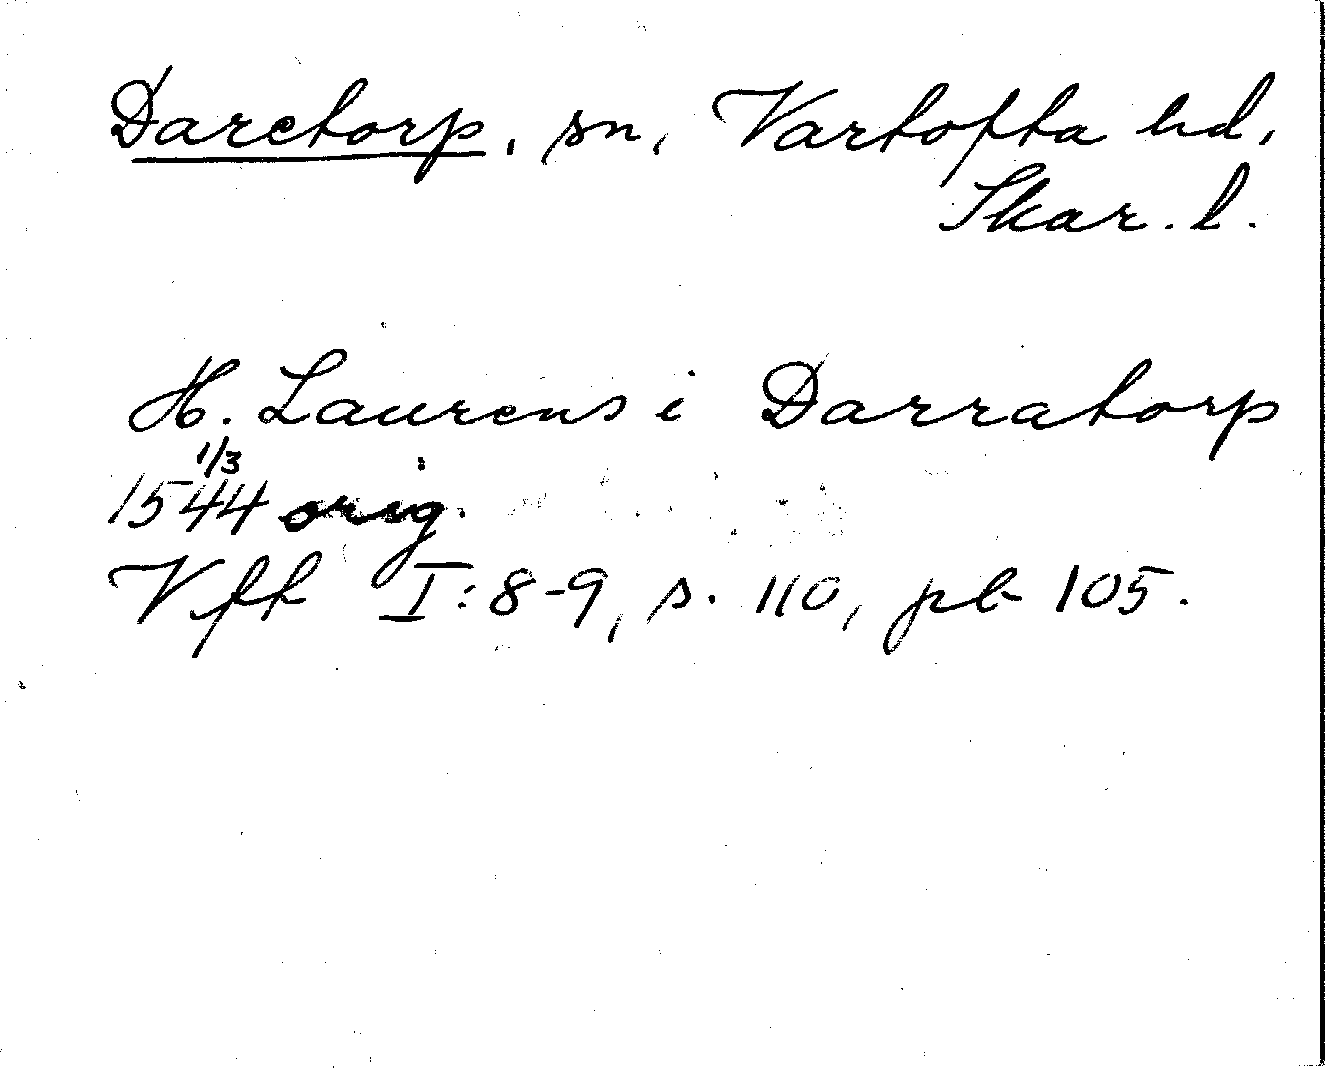 Daretorp, sn, Vartofta hd,
Skar. l.
H. Laurens i Darratorp
1/3
1544 orig.
Vft I: 8-9, s. 110, pb 105.